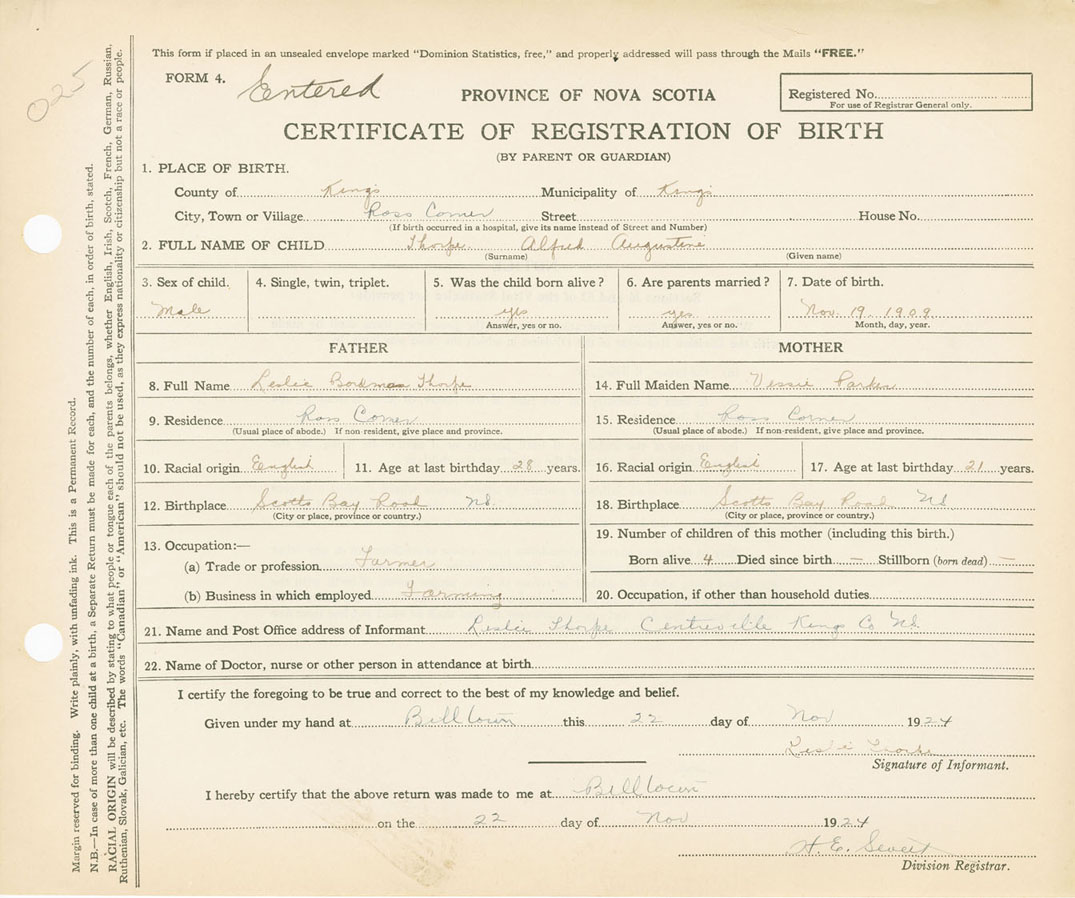 This form if placed in an unsealed envelope marked "Dominion Statistics, free," and properly addressed will pass through the Mails "FREE."
FORM 4. Entered
PROVINCE OF NOVA SCOTIA
Registered No.
For use of Registrar General only.
CERTIFICATE OF REGISTRATION OF BIRTH
(BY PARENT OR GUARDIAN)
1. PLACE OF BIRTH.
County of Kings Municipality of Kings
City, Town or Village Ross Corner Street House No.
(If birth occurred in a hospital, give its name instead of Street and Number)
2. FULL NAME OF CHILD Thorpe Alfred Augustine
(Surname) (Given name)
3. Sex of child. 4. Single, twin, triplet. 5. Was the child born alive? 6. Are parents married? 7. Date of birth.
Male yes yes Nov. 19 1909
Answer, yes or no. Answer, yes or no. Month, day, year.
FATHER MOTHER
8. Full Name Leslie Bordman Thorpe 14. Full Maiden Name Vessie Parker
9. Residence Ross Corner 15. Residence Ross Corner
(Usual place of abode.) If non-resident, give place and province. (Usual place of abode.) If non-resident, give place and province.
10. Racial origin English 11. Age at last birthday 28 years. 16. Racial origin English 17. Age at last birthday 21 years.
12. Birthplace Scotts Bay Road NS 18. Birthplace Scotts Bay Road NS
(City or place, province or country.) (City or place, province or country.)
13. Occupation:— 19. Number of children of this mother (including this birth.)
(a) Trade or profession Farmer Born alive 4 Died since birth — Stillborn (born dead) —
(b) Business in which employed Farming 20. Occupation, if other than household duties
21. Name and Post Office address of Informant Leslie Thorpe Centreville Kings Co NS
22. Name of Doctor, nurse or other person in attendance at birth
I certify the foregoing to be true and correct to the best of my knowledge and belief.
Given under my hand at Billtown this 22 day of Nov 1924
Leslie Thorpe
Signature of Informant.
I hereby certify that the above return was made to me at Billtown
on the 22 day of Nov 1924
H. E.
Division Registrar.
025
Margin reserved for binding. Write plainly, with unfading ink. This is a Permanent Record.
N.B.—In case of more than one child at a birth, a Separate Return must be made for each, and the number of each, in order of birth, stated.
RACIAL ORIGIN will be described by stating to what people or tongue each of the parents belongs, whether English, Irish, Scotch, French, German, Russian,
Ruthenian, Slovak, Galician, etc. The words "Canadian" or "American" should not be used, as they express nationality or citizenship but not a race or people.